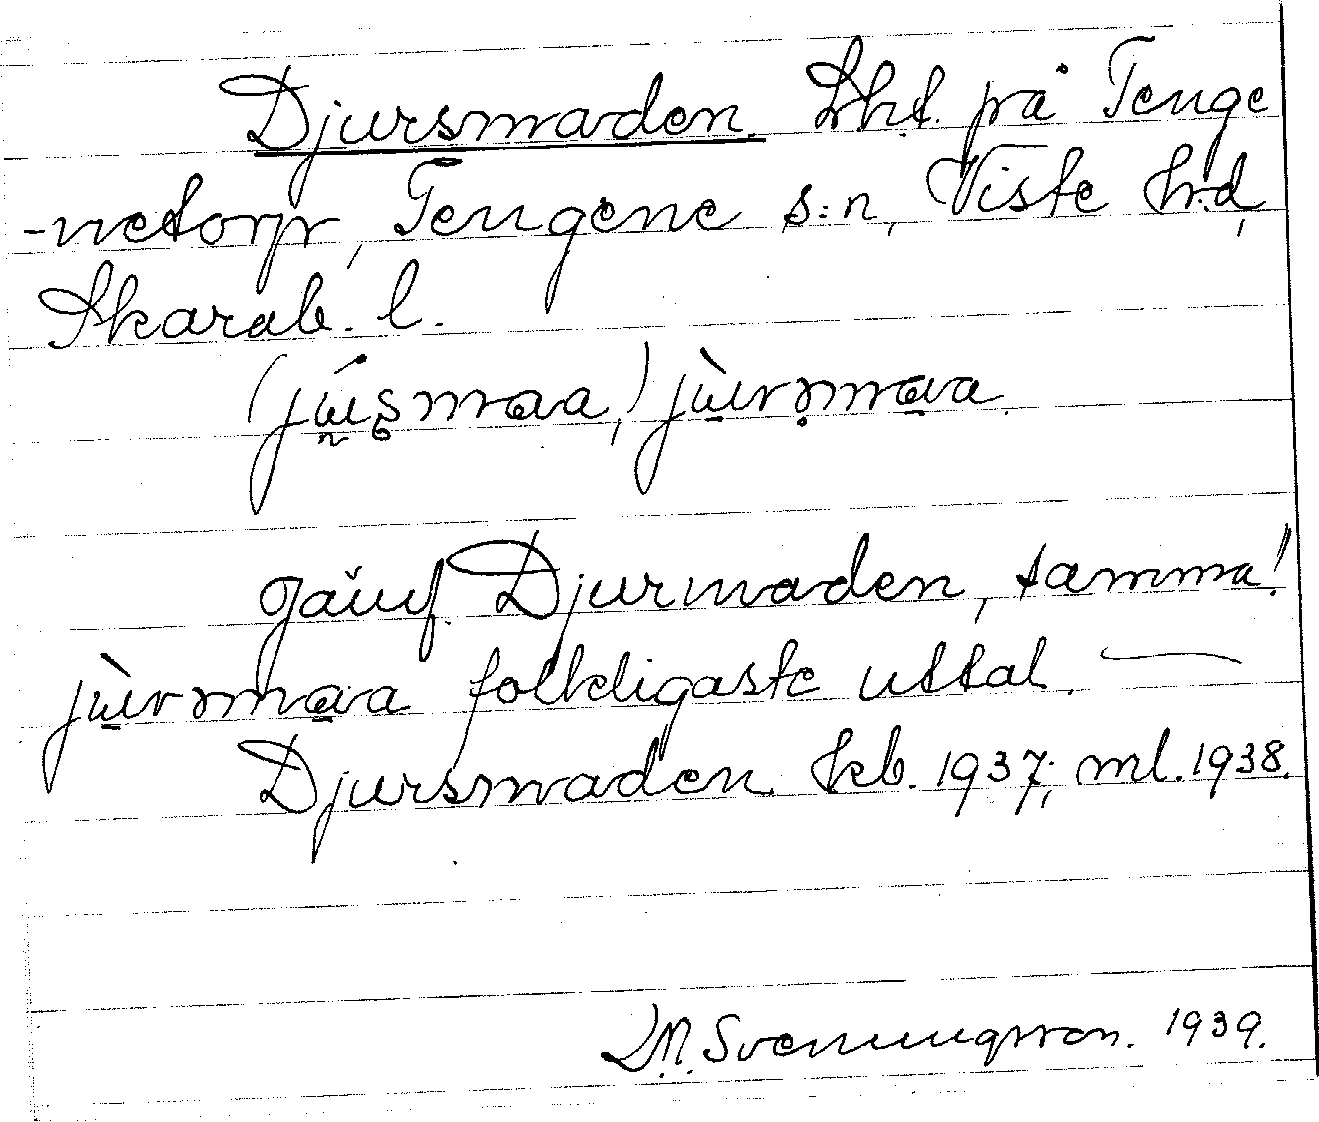 Djursmaden. Skt. på Tenge
-netorp, Tengene s:n, Viste h:d,
Skarab. l.
(júʂmaa,) jùrmaa.
Jämf. Djurmaden, samma!
jùrmaa folkligaste uttal. —
Djursmaden kb. 1937; ml. 1938.
Svenningsson. 1939.